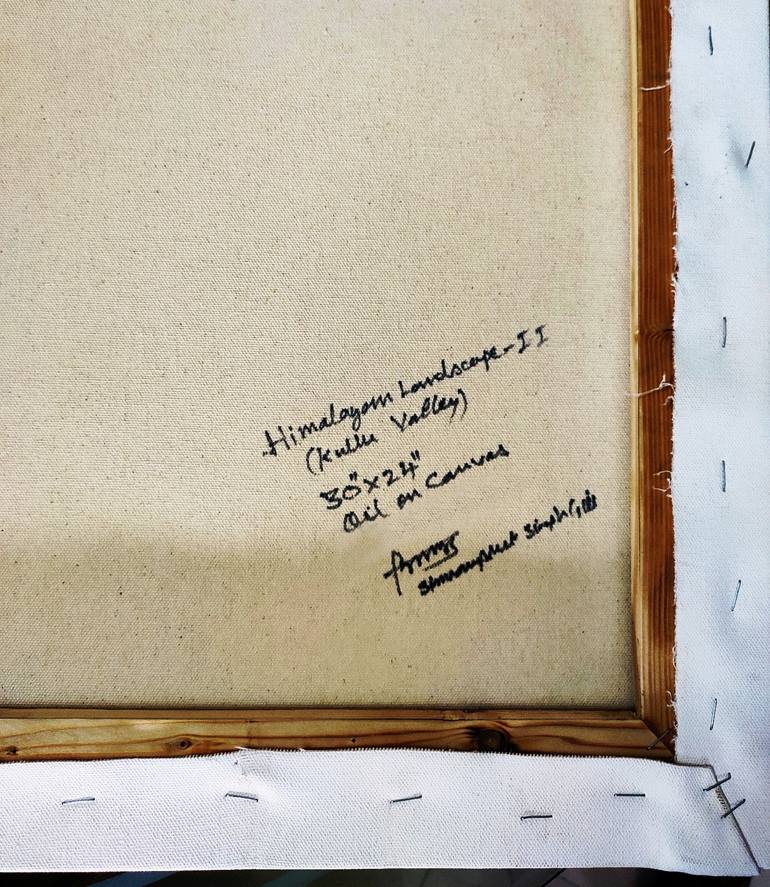 Himalayan Landscape-II
(Kullu Valley)
30"x24"
Oil on Canvas
Simranpreet Singh Gill